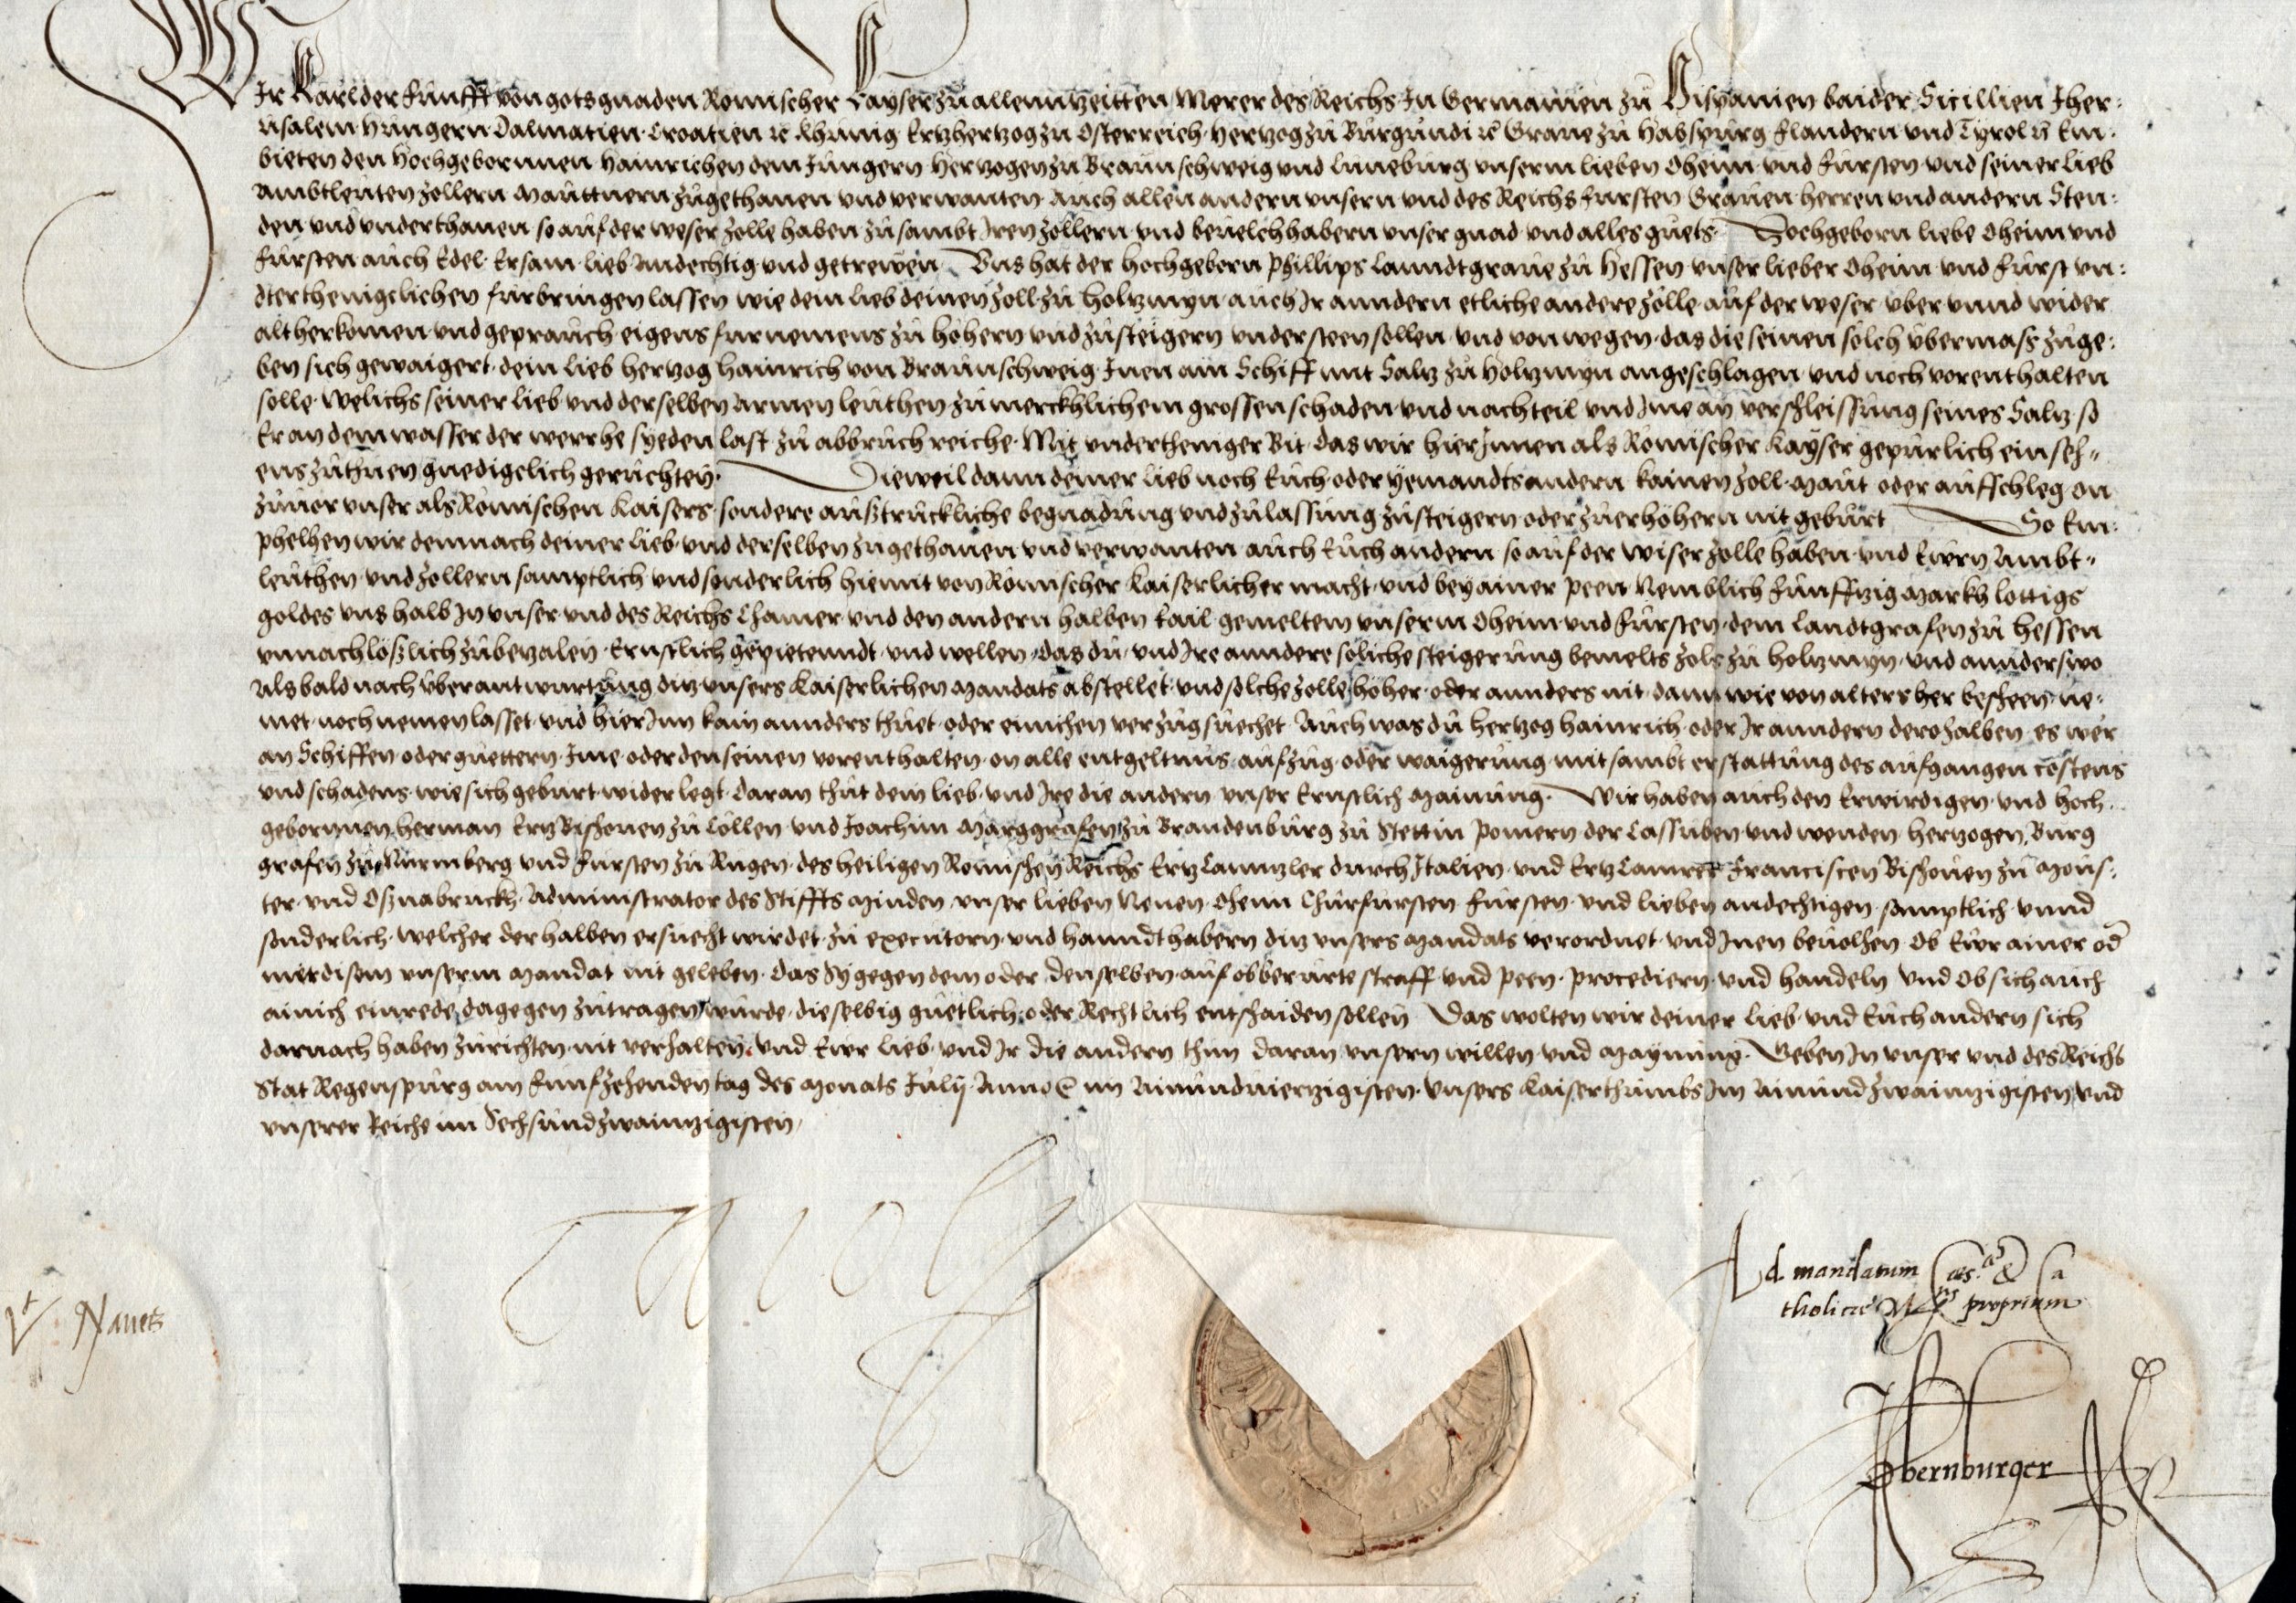 Wir Karl der Fünfft von gots gnaden Römischer Kayser zů allenn zeitten Merer des Reichs In Germanien zů Hispanien baider Sicillien Jher:
usalem Hungern Dalmatien Croatien ꝛc Khünig Ertzhertzog zů Osterreich Hertzog zů Burgundi ꝛc Graue zů Habspurg Flandern vnd Tyrol ꝛc Em:
bieten den Hochgebornnen Hainrichen dem Jungern Hertzogen zů Braunschweig vnd Luneburg vnserm lieben Oheim vnd Fürsten vnd seiner Lieb
Ambtleuten Zollern Mauttnern zůgethanen vnd verwanten Auch allen andern vnsern vnd des Reichs Fursten Grauen Herren vnd andern Sten:
den vnd vnderthanen so auf der weser Zolle haben zůsambt Iren Zöllern vnd beuelchhabern vnser gnad vnd alles guets Hochgeborn liebe Oheim vnd
Fürsten auch Edel Ersam lieb Andechtig vnd getrewen Vns hat der Hochgeborn Phillips Lanndtgraue zů Hessen vnser lieber Oheim vnd Fürst vn:
dterthenigclichen furbringen lassen wie dein lieb deinen Zoll zů Holtzmyn auch Ir anndern etliche andere Zölle auf der weser vber vnnd wider
altherkomen vnd geprauch eigens furnemens zů höhern vnd zůsteigern vndersteen sollen vnd von wegen das die seinen solch vbermass zůge:
ben sich gewaigert dein Lieb Hertzog Hainrich von Braunschweig Inen ain Schiff mit Saltz zů Holtzmyn angeschlagen vnd noch vorenthalten
solle Welichs seiner Lieb vnd derselben Armen leuthen zů merckhlichem grossen schaden vnd nachteil vnd Ime an verschleissung seines Saltz so
Er an dem wasser der werrhe syeden last zů abbruch reiche Mit vndertheniger Bit das wir hierInnen als Römischer Kayser gepürlich einseh=
ens zůthuen gnedigelich geruchten Dieweil dann deiner Lieb noch Euch oder yemandts andern kainen Zoll Maut oder aufschleg on
zuuor vnser als Römischen Kaisers sondere außtruckliche begnadung vnd zůlassung zůsteigern oder zůerhöhern nit gebürt So Em:
phelhen wir demnach deiner Lieb vnd derselben zugethanen vnd verwanten auch Euch andern so auf der Wiser Zolle haben vnd Ewrn Ambt=
leuthen vnd Zollern samptlich vnd sonderlich hiemit von Römischer Kaiserlicher macht vnd bey ainer peen Nemblich Fünffzig Markh lottigs
goldes vns halb In vnser vnd des Reichs Chamer vnd den andern halben tail gemeltem vnserm Oheim vnd Fürsten dem Landtgrafen zů Hessen
vnnachlößlich zůbezalen Ernstlich gepietenndt vnd wellen das du vnd Ire anndere soliche steigerung bemelts Zols zů Holtzmyn vnd annderswo
Als bald nach vberantwurtung ditz vnsers Kaiserlichen Mandats abstellet vnd solche Zolle höher oder annders nit dann wie von alters her beschehen ne:
met noch nemen lasset vnd hierInn kain annders thuet oder einichen verzug suechet Auch was du Hertzog Hainrich oder Ir anndern derohalben es wer
an Schiffen oder guettern Ime oder den seinen vorenthalten on alle entgeltnus aufzug oder waigerung mit sambt erstattung des aufgangen costens
vnd schadens wie sich geburt widerlegt Daran thut dein lieb vnd Ire die andern vnser Ernstlich Mainung Wir haben auch den Erwirdigen vnd Hoch
gebornnen Herman Ertzbischouen zů Cöllen vnd Joachim Marggrafen zů Brandenburg zů Stettin Pomern der Cassuben vnd wenden Hertzogen Burg
grafen zů Nurmberg vnd Fursten zů Rugen des heiligen Romischen Reichs Ertz Canntzler durch Italien vnd Ertz Camrer Franciscen Bischouen zů Mons:
ter vnd Oßnabruckh Administrator des Stiffts Minden vnser lieben Neuen Oheim Churfursten Fürsten vnd lieben andechtigen samptlich vnnd
sonderlich welcher derhalben ersuecht wirdet zů executorn vnd hanndthabern ditz vnsers Mandats verordnet vnd Inen beuolhen Ob Ewr ainer od
mer disem vnserm Mandat nit geleben das Sy gegen dem oder denselben auf obberurte straff vnd peen procediern vnd handeln vnd ob sich auch
ainich einrede dagegen zůtragen wurde dieselbig guetlich oder Rechtlich entschaiden sollen Das wolten wir deiner Lieb vnd Euch andern sich
darnach haben zůrichten nit verhalten vnd Ewr Lieb vnd Ir die andern thun daran vnsern willen vnd Maynung Geben In vnser vnd des Reichs
Stat Regenspurg am funfzehenden tag des Monats Julij Anno ꝛc im Ainundvierzigisten vnsers Kaiserthumbs Im Ainundzwaintzigisten vnd
vnserer Reiche im Sechsundzwaintzigisten
Carolus
Ad mandatum Caes.ae & Ca
tholicae M.tis proprium
Vt Naues
Obernburger